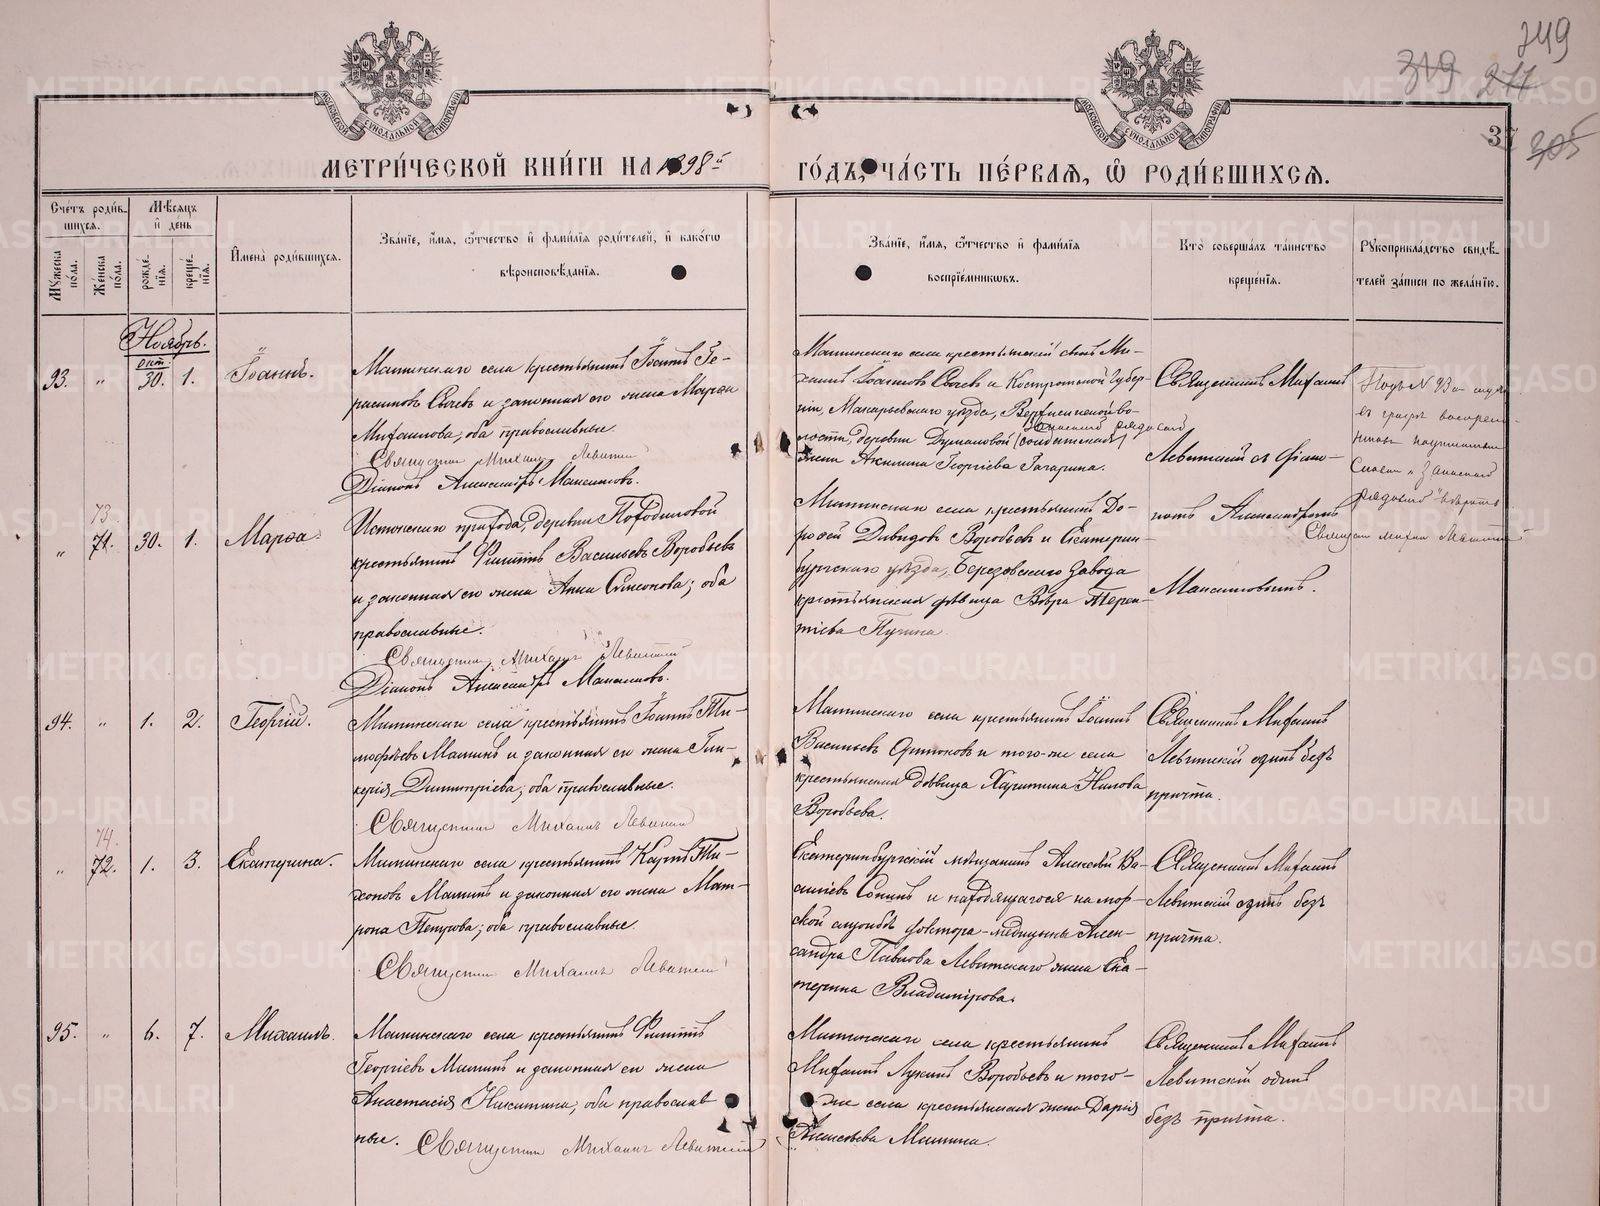 749
319 277
37 305
МОСКОВСКОЙ СѴНОДАЛЬНОЙ ТИПОГРАФІИ
МОСКОВСКОЙ СѴНОДАЛЬНОЙ ТИПОГРАФІИ
МЕТРИ́ЧЕСКОЙ КНИ́ГИ НА 1898й ГО́ДЪ, ЧА́СТЬ ПЕ́РВАѦ, Ѡ РОДИ́ВШИХСѦ.
Сче́тъ роди́в-
шихся.
Му́жеска по́ла.
Же́нска по́ла.
Мѣ́сяцъ
и де́нь
рожде́-
нїя.
креще́-
нїя.
Имена̀ роди́вшихся.
Зва́нїе, и́мя, ѻ́тчество и фами́лїя роди́телей, и како́гѡ
вѣроисповѣ́данїя.
Зва́нїе, и́мя, ѻ́тчество и фами́лїя
воспрїе́мникѡвъ.
Кто̀ соверша́лъ та́инство
креще́нїя.
Рꙋкоприкла́дство свидѣ́-
телей за́писи по жела́нїю.
Ноябрь.
окт.
93. " 30. 1. Іоаннъ.
Мамтинскаго села крестьянинъ Іоаннъ Ге-
расимовъ Сычевъ и законная его жена Марѳа
Михаилова, оба православные.
Священник Михаил Левитский
Діаконъ Александръ Максимовъ.
села крестьянскій сынъ Ми-
хаилъ Іоанновъ Сычевъ и Костромской губер-
ніи, Макарьевскаго уѣзда, во-
запасной рядовой
лости, деревни
жена Акилина Георгіева Гагарина.
Священникъ Михаилъ
Левитскій съ діако-
номъ Александромъ
Максимовымъ.
Подъ № 93
въ графѣ воспрем-
никовъ надписаны
Слова "Запасной
рядовой" вѣрить
Священ Михаил
73
" 71. 30. 1. Марѳа.
Истокскаго прихода, деревни
крестьянинъ Филиппъ Васильевъ Воробьевъ
и законная его жена Анна Симеонова; оба
православные.
Священник Михаил Левитский
Діаконъ Александръ Максимовъ.
села крестьянинъ До-
роѳей Давидовъ Воробьевъ и Екатерин-
бургскаго уѣзда, Березовскаго завода
крестьянская дѣвица Вѣра Терен-
тіева Пучина.
94. " 1. 2. Георгій.
села крестьянинъ Іоаннъ Ти-
моѳѣевъ Маминъ и законная его жена Гли-
керія Димитріева, оба православные.
Священник Михаил Левитский
села крестьянинъ Іоаннъ
Васильевъ и того-же села
крестьянская дѣвица Харитина Нилова
Воробьева.
Священникъ Михаилъ
Левитскій одинъ безъ
причта.
74.
" 72. 1. 3. Екатерина.
села крестьянинъ Карпъ Ти-
хоновъ Маминъ и законная его жена Мат-
рона Петрова; оба православные.
Священник Михаил Левитский
Екатеринбургскій мѣщанинъ Алексѣй Ва-
сильевъ Сопинъ и находящагося на мор-
ской службѣ доктора-медицины Алек-
сандра Павлова Левитскаго жена Ека-
терина Владимірова.
Священникъ Михаилъ
Левитскій одинъ безъ
причта.
95. " 6. 7. Михаилъ.
села крестьянинъ Филиппъ
Георгіевъ Маминъ и законная его жена
Анастасія Никитина; оба православ-
ные. Священник Михаил Левитский
села крестьянинъ
Михаилъ Лукинъ Воробьевъ и того-
же села крестьянская жена Дарія
Алексѣева Мамина.
Священникъ Михаилъ
Левитскій одинъ
безъ причта.
METRIKI.GASO-URAL.RU